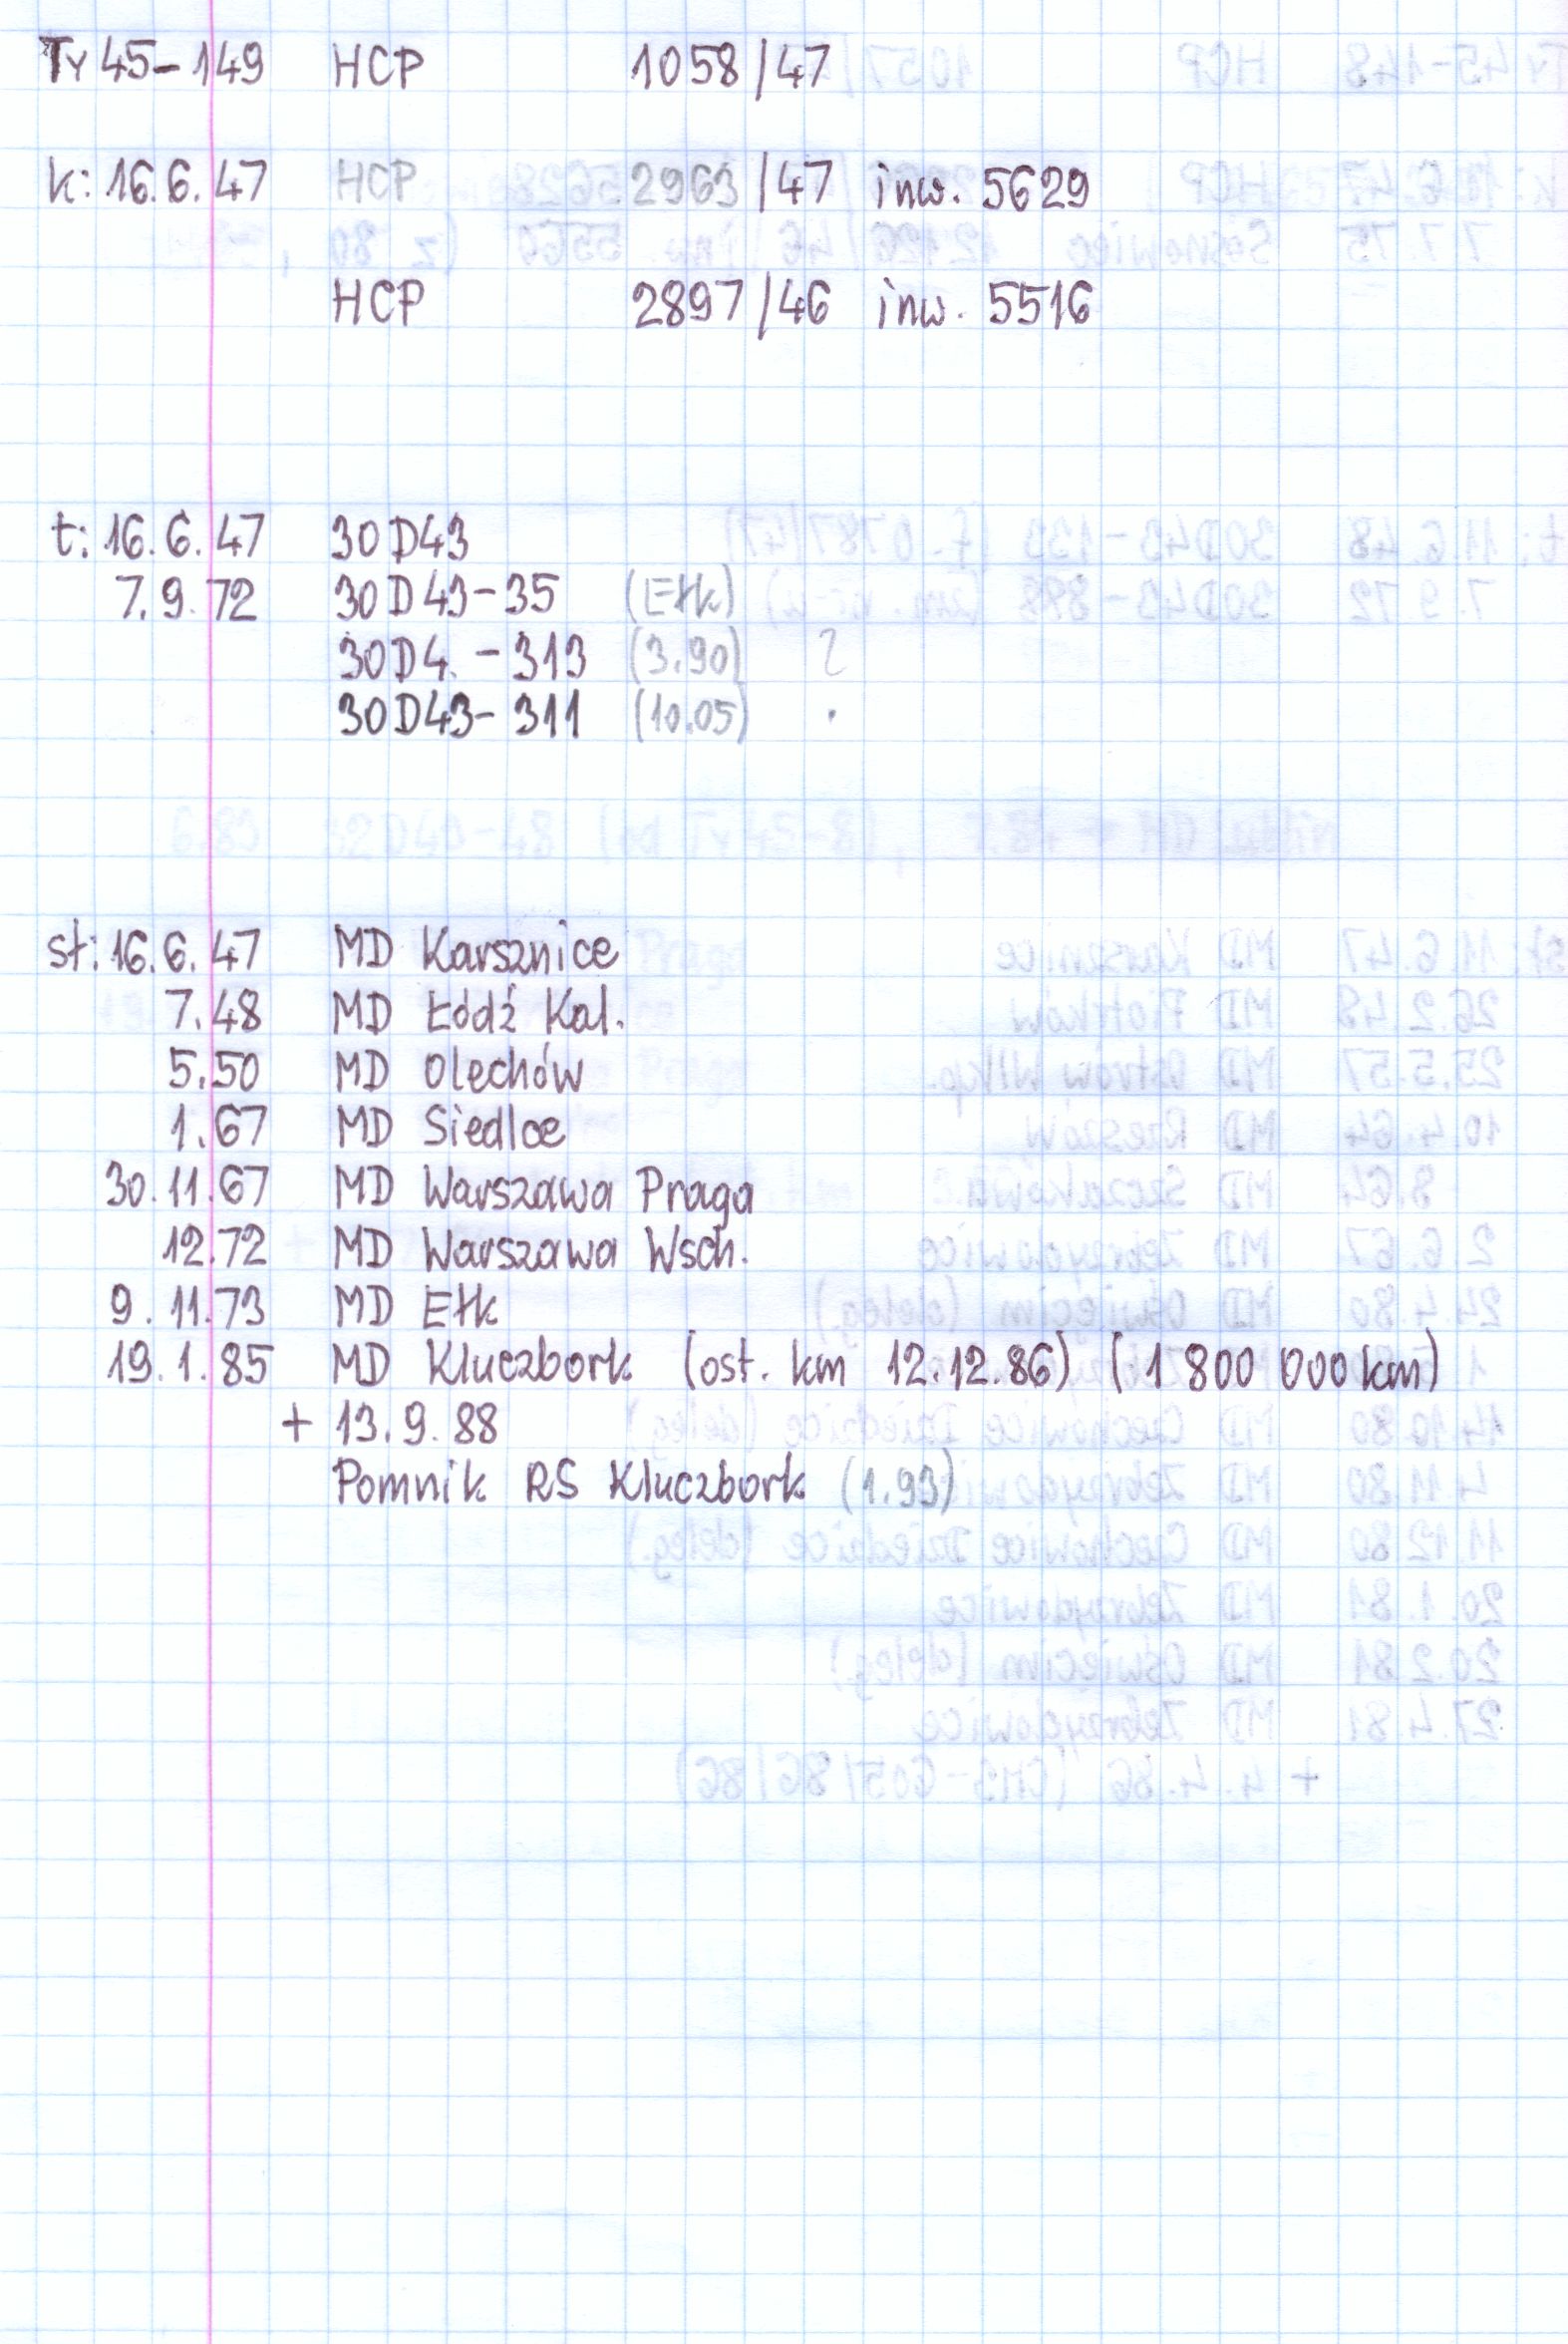 Ty45-149 HCP 1058/47
k: 16.6.47 HCP 2963/47 inw. 5629
HCP 2897/46 inw. 5516
t: 16.6.47 30D43
7.9.72 30D43-35 (Ełk)
30D4.-313 (3.90) ?
30D43-311 (10.05) .
st: 16.6.47 MD Karsznice
7.48 MD Łódź Kal.
5.50 MD Olechów
1.67 MD Siedlce
30.11.67 MD Warszawa Praga
12.72 MD Warszawa Wsch.
9.11.73 MD Ełk
19.1.85 MD Kluczbork (ost. km 12.12.86) (1 800 000 km)
+ 13.9.88
Pomnik RS Kluczbork (1.93)